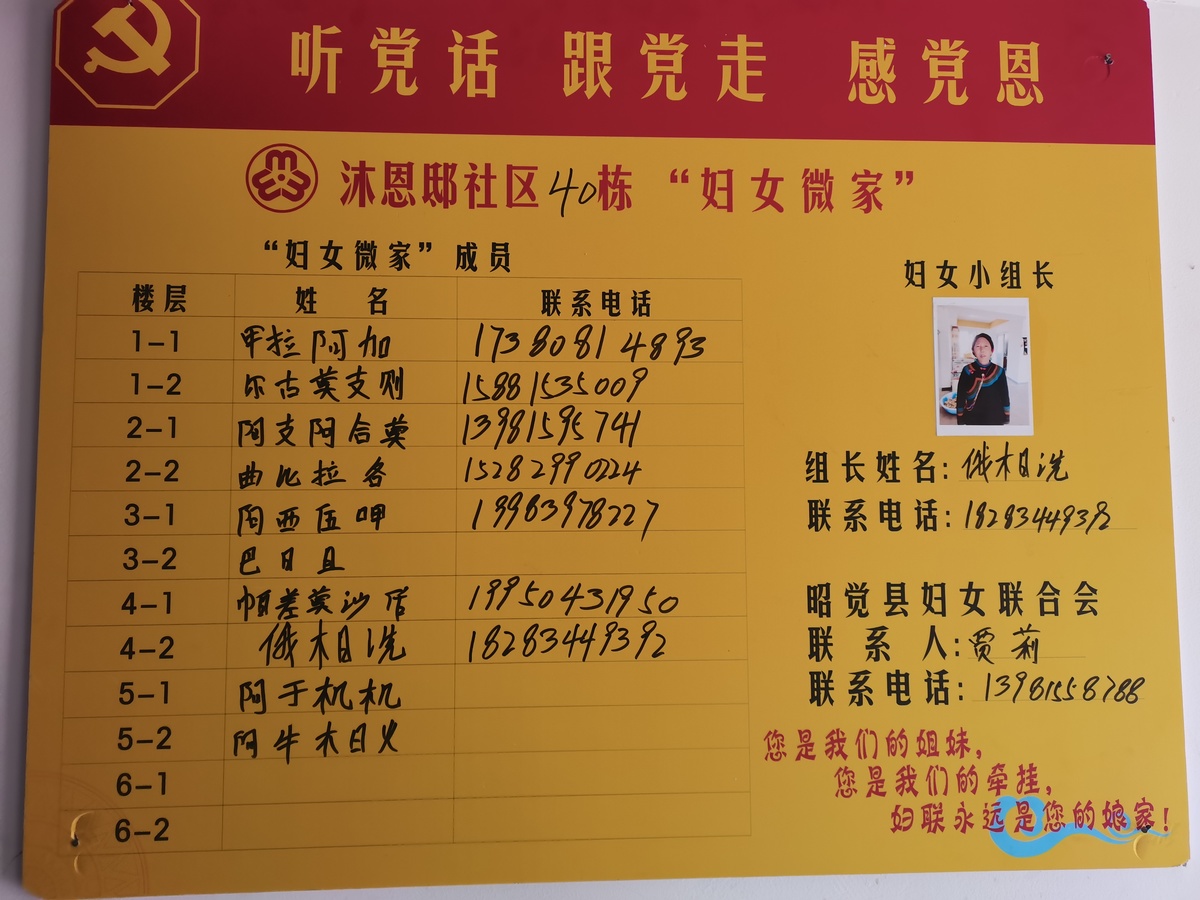 听党话 跟党走 感党恩
沐恩邸社区40栋 “妇女微家”
“妇女微家”成员
楼层 姓名 联系电话
1-1 甲拉阿加 17380814893
1-2 尔古莫支则 15881535009
2-1 阿支阿合莫 13981595741
2-2 曲比拉各 15282990224
3-1 阿西伍呷 19983978227
3-2 巴日且
4-1 帕差莫沙 19950431950
4-2 俄木日洗 18283449392
5-1 阿于机机
5-2 阿牛木日火
6-1
6-2
妇女小组长
组长姓名：俄木日洗
联系电话：18283449392
昭觉县妇女联合会
联系人：贾莉
联系电话：13981558788
您是我们的姐妹，
您是我们的牵挂，
妇联永远是您的娘家！